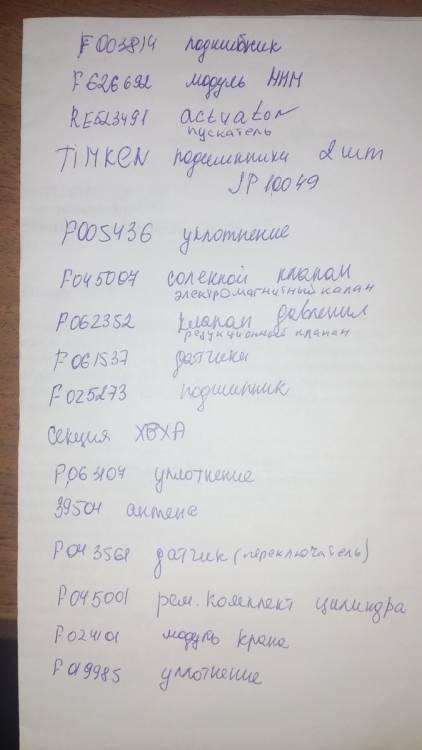 F003814 подшибник
F626692 модуль ННН
RE523491 actuator
пускатель
TIMKEN подшипники 2 шт
JP10049
F005436 уплотнение
F045007 соленной клапан
электромагнитный капан
F062352 клапан давения
редукционный клапан
F061537 датчики
F025273 подшипник
секция ХВХА
F063107 уплотнение
39504 антена
F043561 датчик (переключатель)
F045001 рем. комплект цилиндра
F024101 модуль крана
F019985 уплотнение